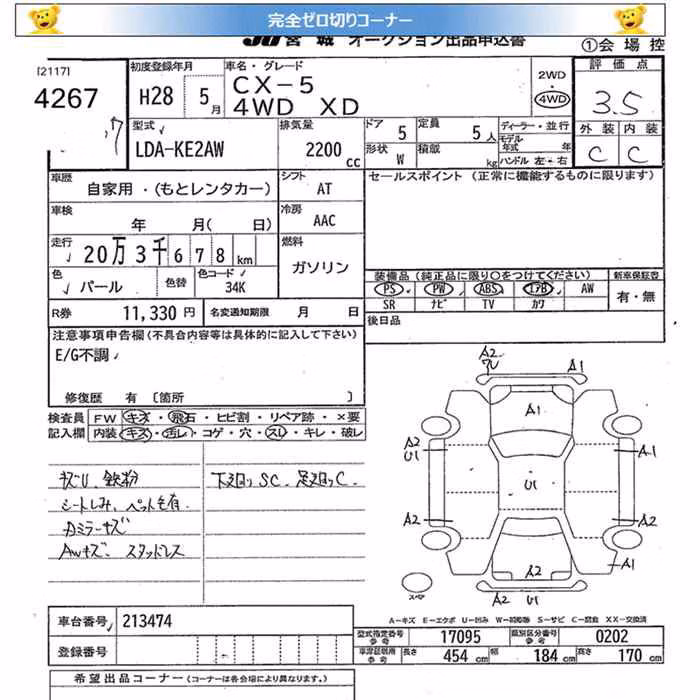 完全ゼロ切りコーナー
JU宮城 オークション出品申込書
①会場控
[2117]
4267
初度登録年月
H28 5月
車名・グレード
CX-5
4WD XD
2WD
・
4WD
評価点
3.5
外装 内装
C C
型式
LDA-KE2AW
排気量
2200 cc
ドア 5
定員 5人
形状 W
積載 kg
ディーラー・並行
モデル年式 年
ハンドル 左・右
車歴
自家用・(もとレンタカー)
シフト AT
車検
年 月( 日)
冷房 AAC
走行
20万3千678km
燃料
ガソリン
色 パール
色替
色コード 34K
R券 11,330円
名変通知期限 月 日
セールスポイント (正常に機能するものに限ります)
装備品 (純正品に限り○をつけてください)
新車保証書
PS PW ABS エアB AW
SR ナビ TV カワ
有・無
後日品
注意事項申告欄(不具合内容等は具体的に記入して下さい)
E/G不調
修復歴 有 〔箇所 〕
検査員 FW キズ・飛石・ヒビ割・リペア跡・×要
記入欄 内装 キズ・汚レ・コゲ・穴・スレ・キレ・破レ
キズU、鉄粉
シートしみ、ペット毛有
Awキズ、スタッドレス
下廻りSC、足廻りC
A2
A1
A1
A2
U1
A1
U1
A2
A2
A2
A1
A2 U1
スペア
A－キズ E－エクボ U－凹み W－補修跡 S－サビ C－腐食 XX－交換済
車台番号 213474
登録番号
型式指定番号 参考 17095
類別区分番号 参考 0202
車両証明用 参考 長さ 454cm 幅 184cm 高さ 170cm
希望出品コーナー (コーナーは各会場により異なります。)